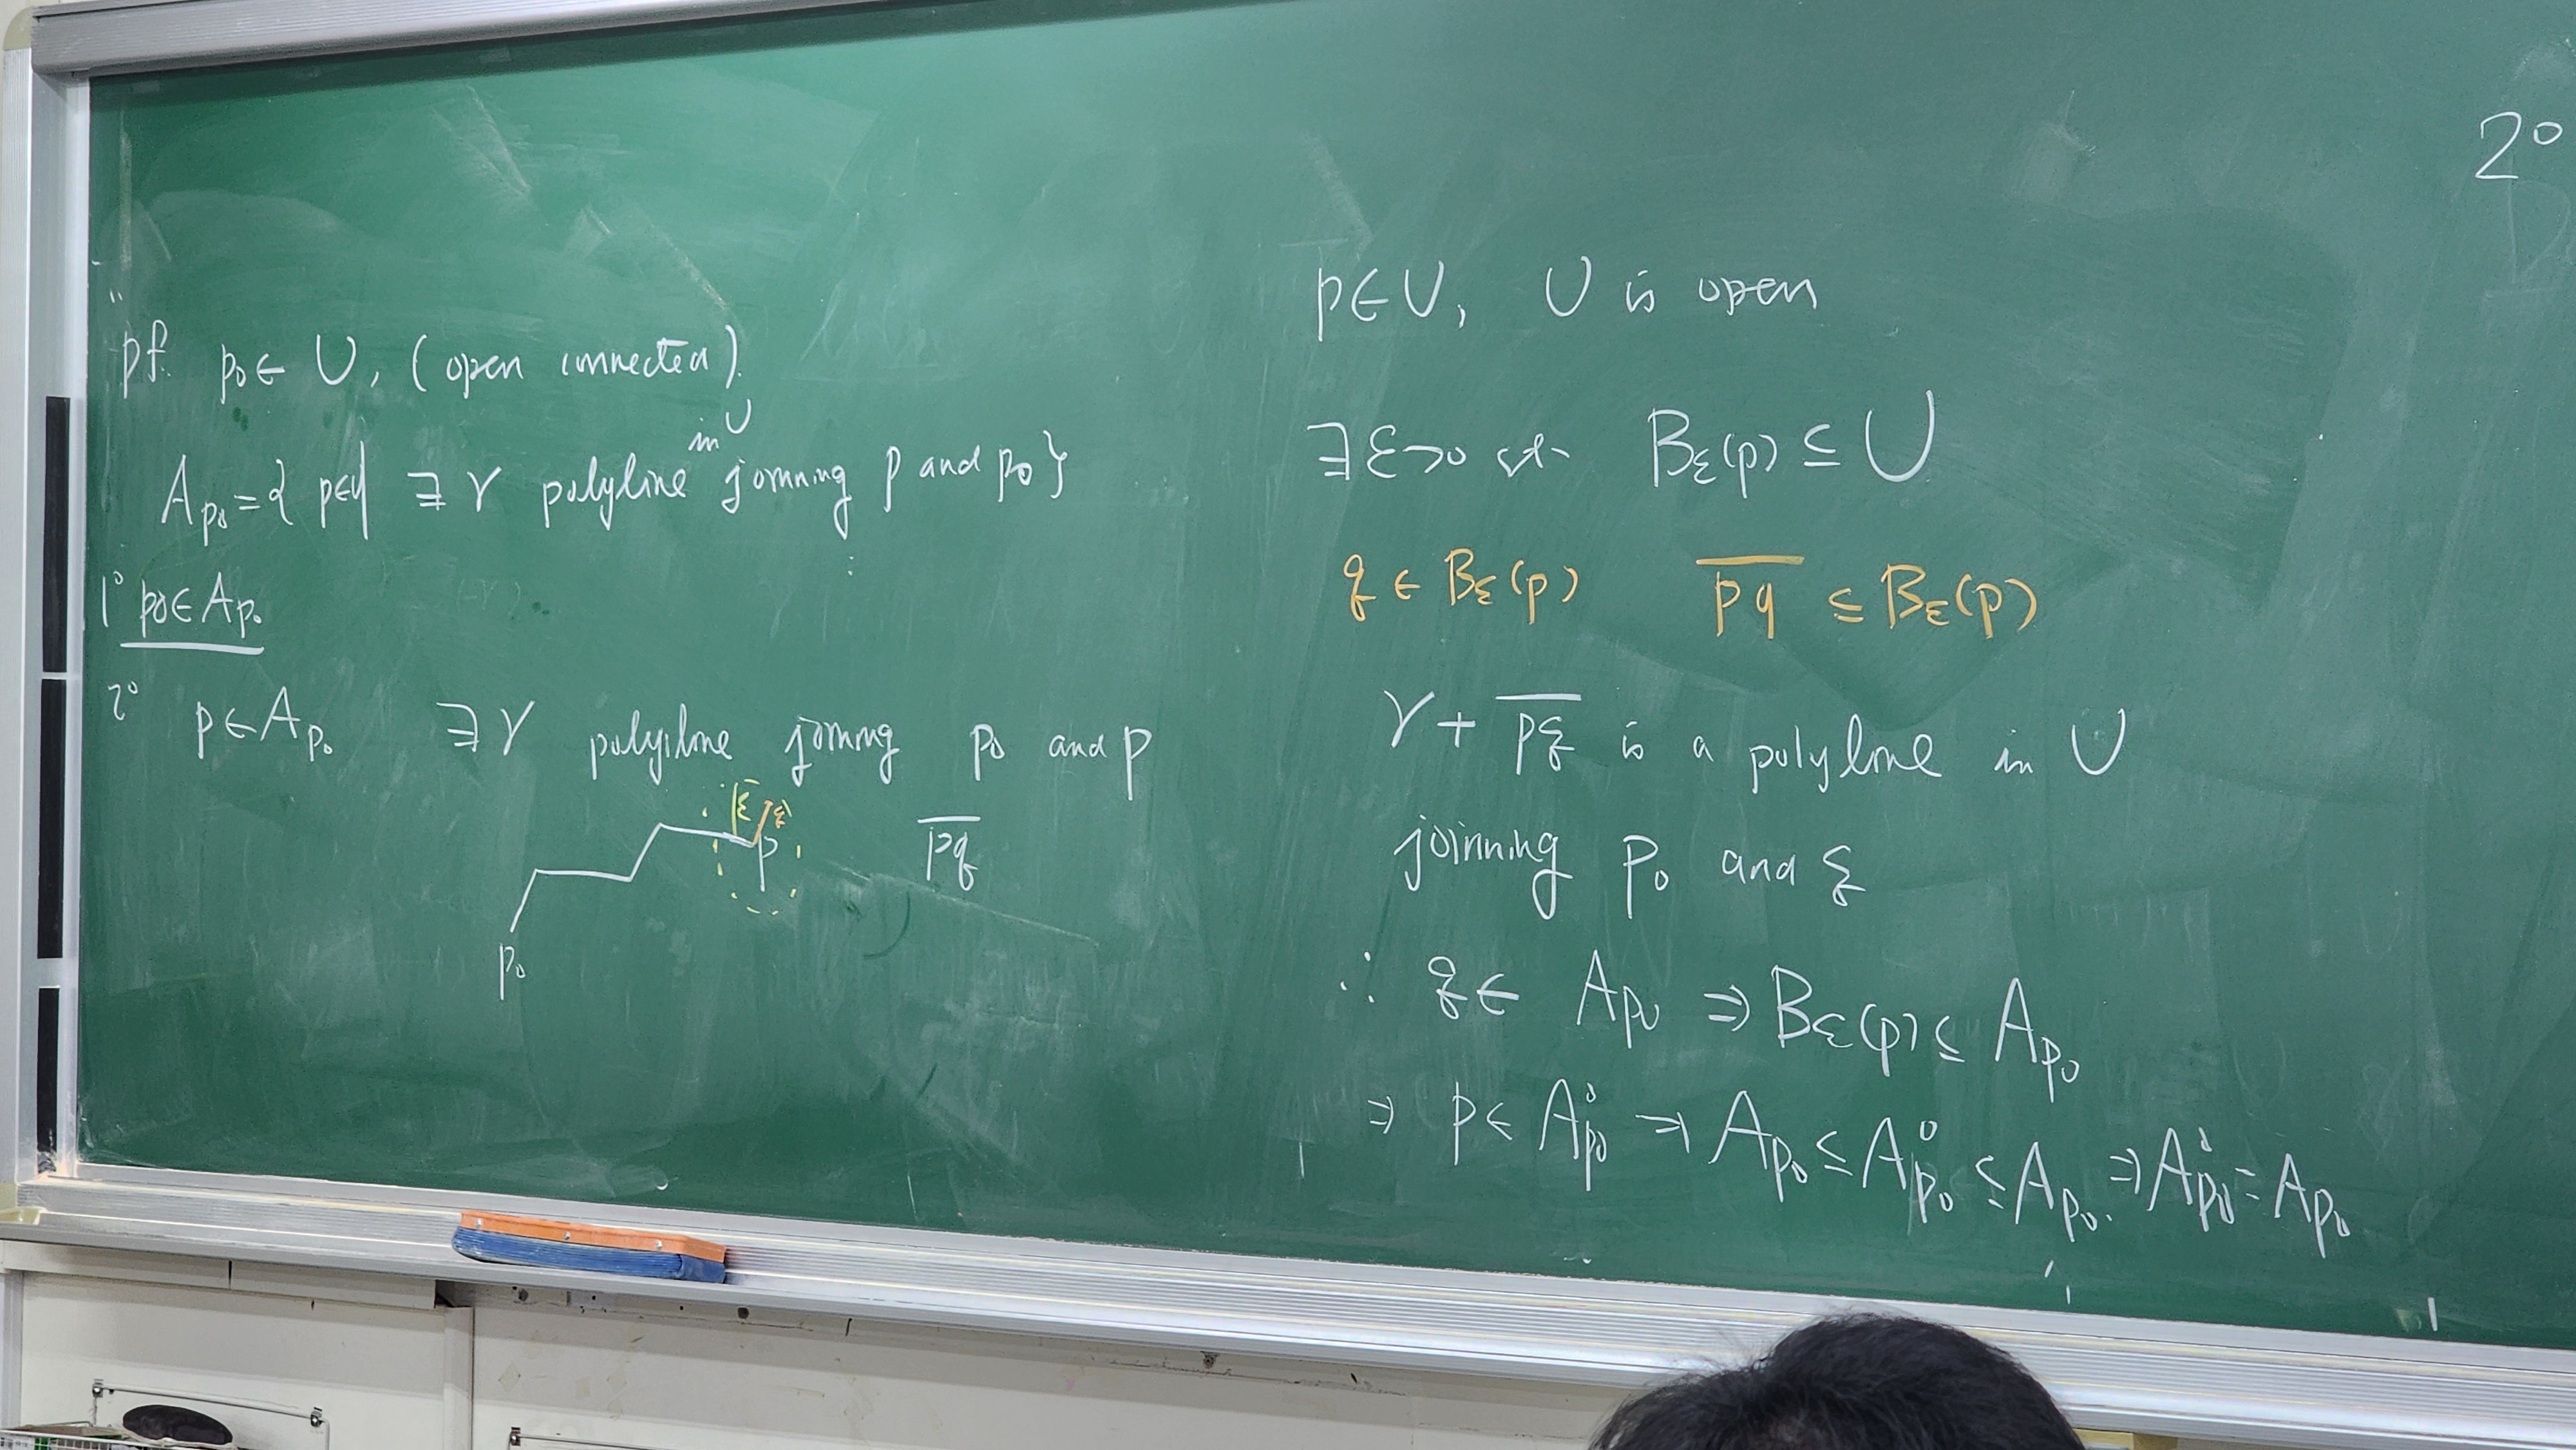 pf. p₀ ∈ U, (open connected).
in U
A_{p₀} = { p∈U | ∃ γ polyline joinning p and p₀ }
1° p₀ ∈ A_{p₀}
2° p ∈ A_{p₀} ∃ γ polyline joining p₀ and p
ε q
p
p₀
\overline{pq}
p∈U, U is open
∃ε>0 st. B_ε(p) ⊆ U
q ∈ B_ε(p) \overline{pq} ⊆ B_ε(p)
γ + \overline{pq} is a polyline in U
joinning p₀ and q
∴ q ∈ A_{p₀} ⇒ B_ε(p) ⊆ A_{p₀}
⇒ p ∈ A°_{p₀} ⇒ A_{p₀} ⊆ A°_{p₀} ⊆ A_{p₀}. ⇒ A°_{p₀} = A_{p₀}
2°